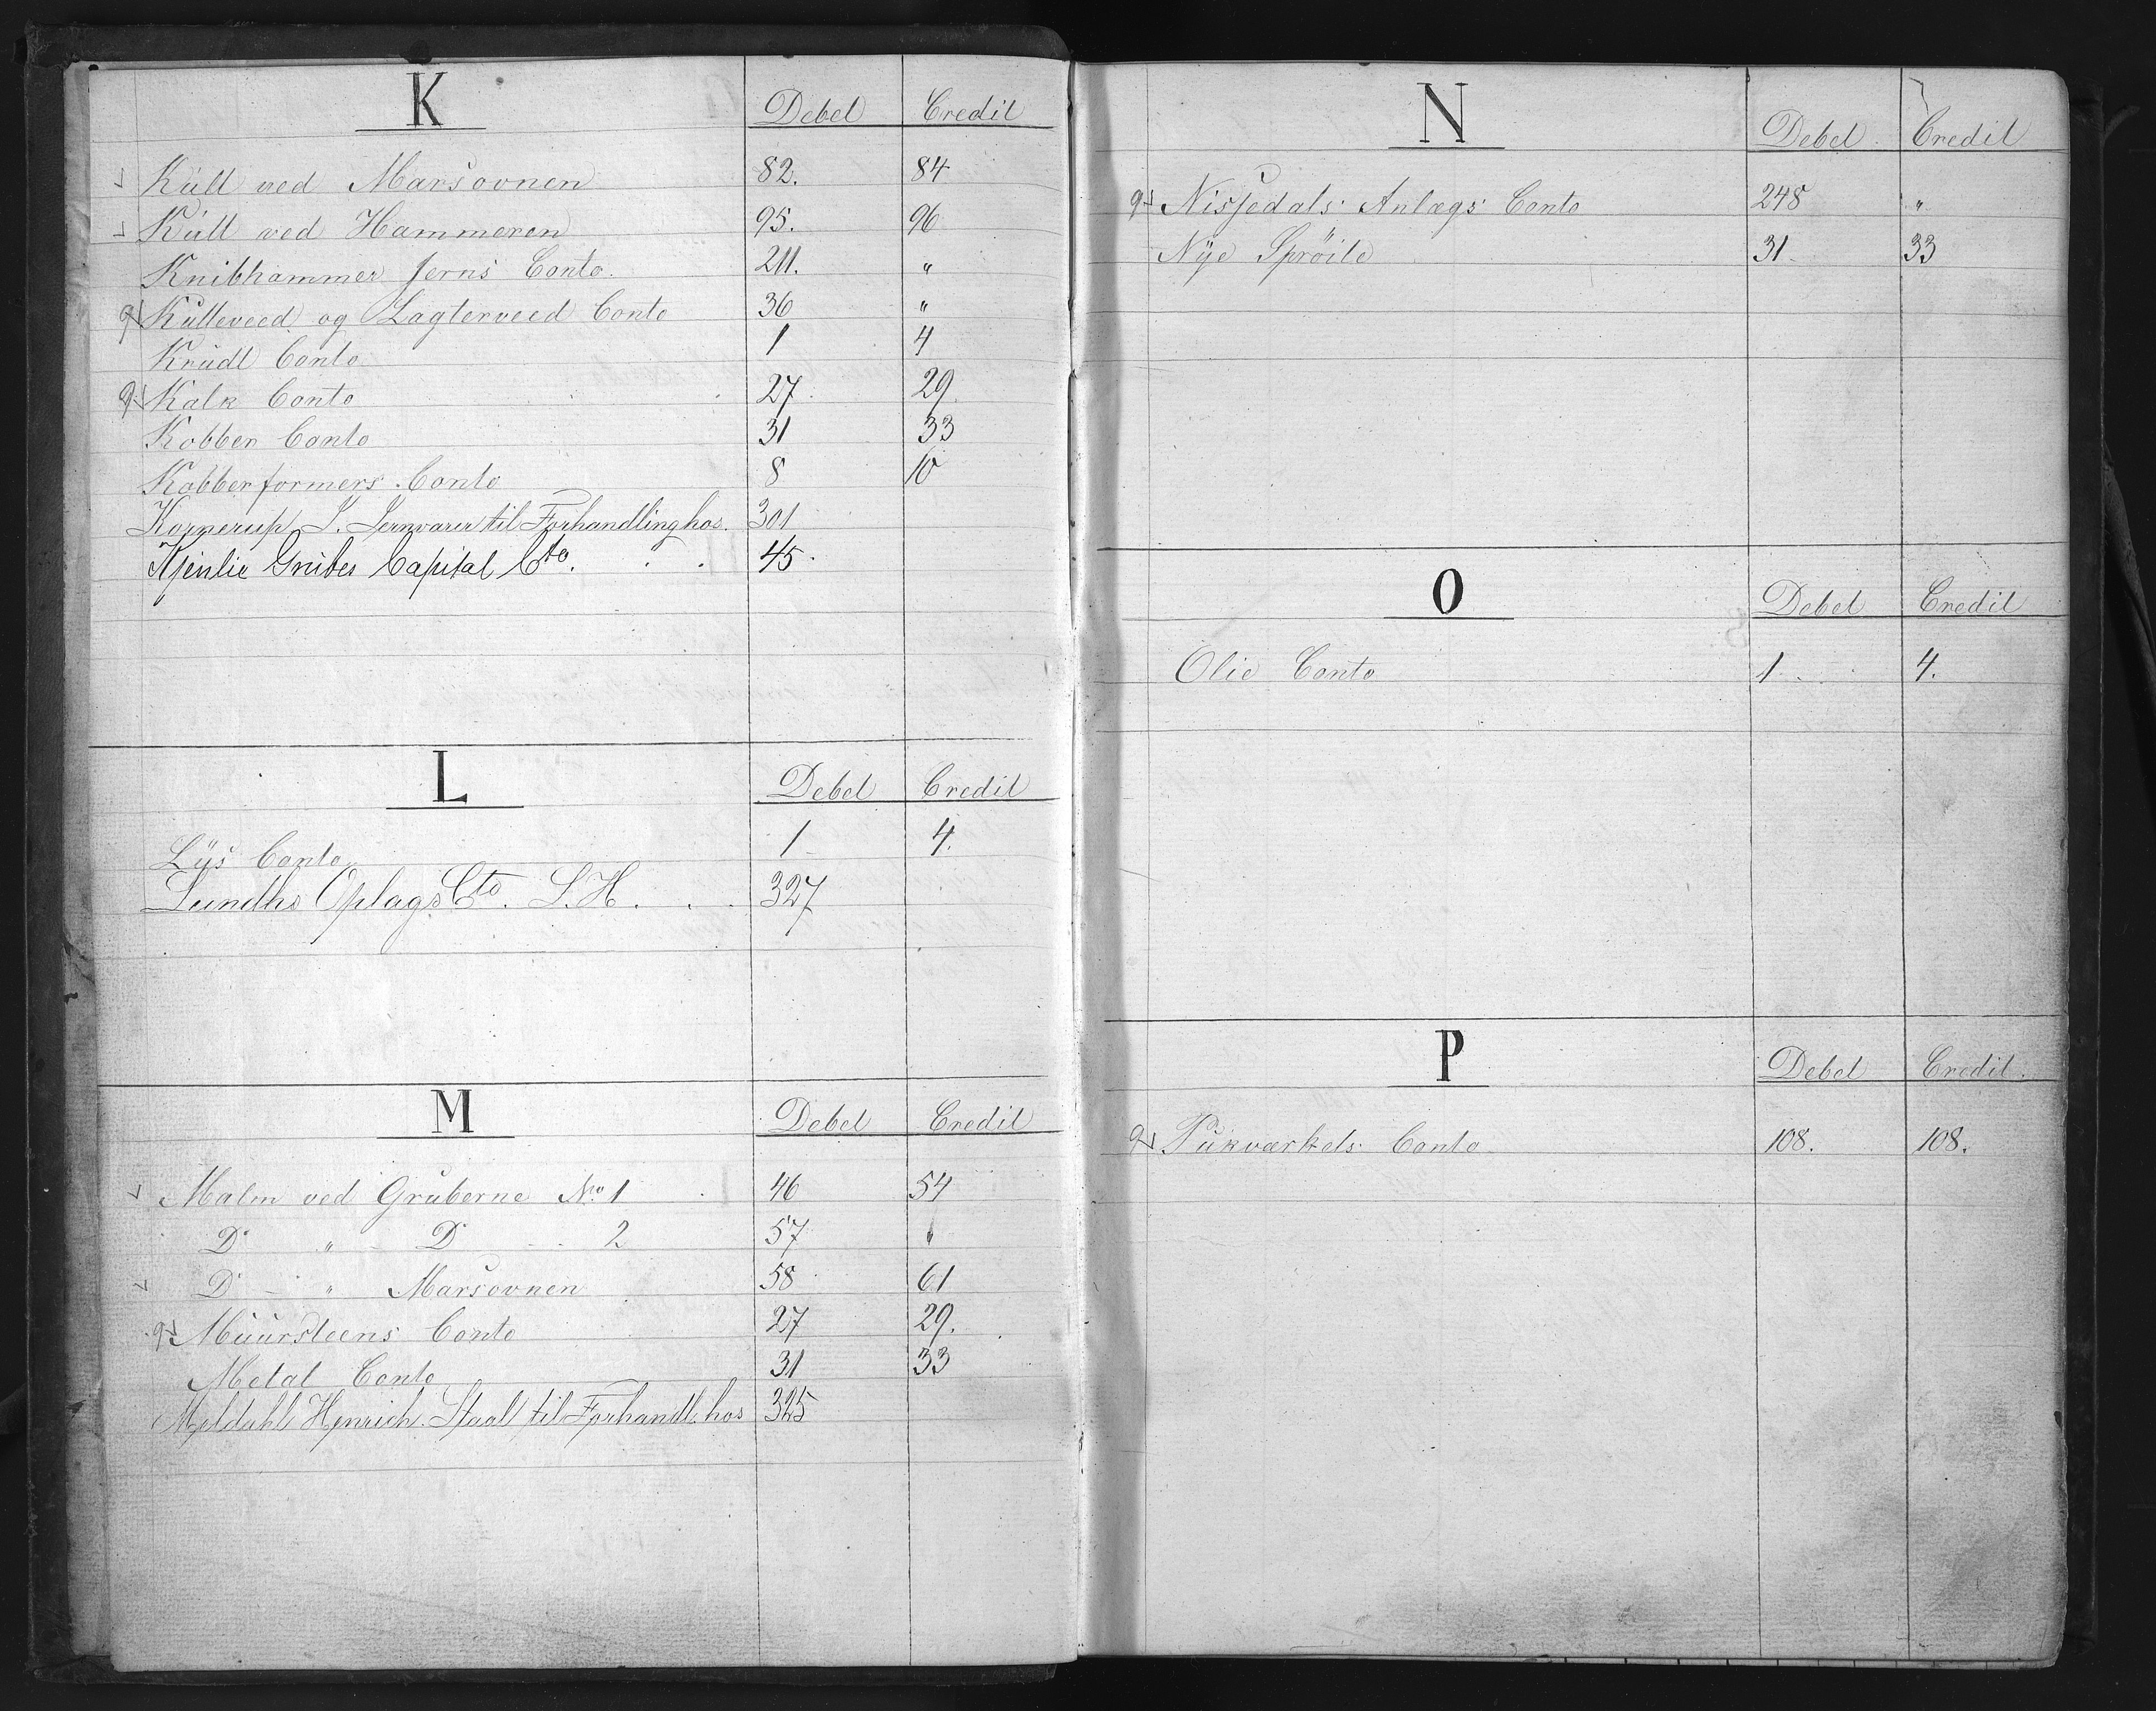 K Debet Credit
Küll ved Marsovnen 82. 84
Küll ved Hammeren 95. 96
Knibhammer Jerns Conto. 211. "
Külleveed og Lagterveed Conto 36 "
Krüdt Conto 1 4
Kalk Conto 27 29.
Kobber Conto 31 33
Kobberformers Conto 8 10
Kornerup, J. Jernvarer til Forhandling hos. 301
Kjenlie Grubes Capital Cto. . . 45.
L Debet Credit
Lÿs Conto 1 4.
Lundhs Oplags Cto. S.H. . . . 327
M Debet Credit
Malm ved Grüberne No. 1 46 54
Do " Do 2 57 "
Do " Marsovnen 58 61
Müürsteens Conto 27 29.
Metal Conto 31 33
Meldahl Henrich. Staal til Forhandl. hos 325
N Debet Credit
Nissedals Anlægs Conto 248 "
Nÿe Sprøite 31 33
O Debet Credit
Olie Conto 1 4.
P Debet Credit.
Pukværkets Conto 108. 108.